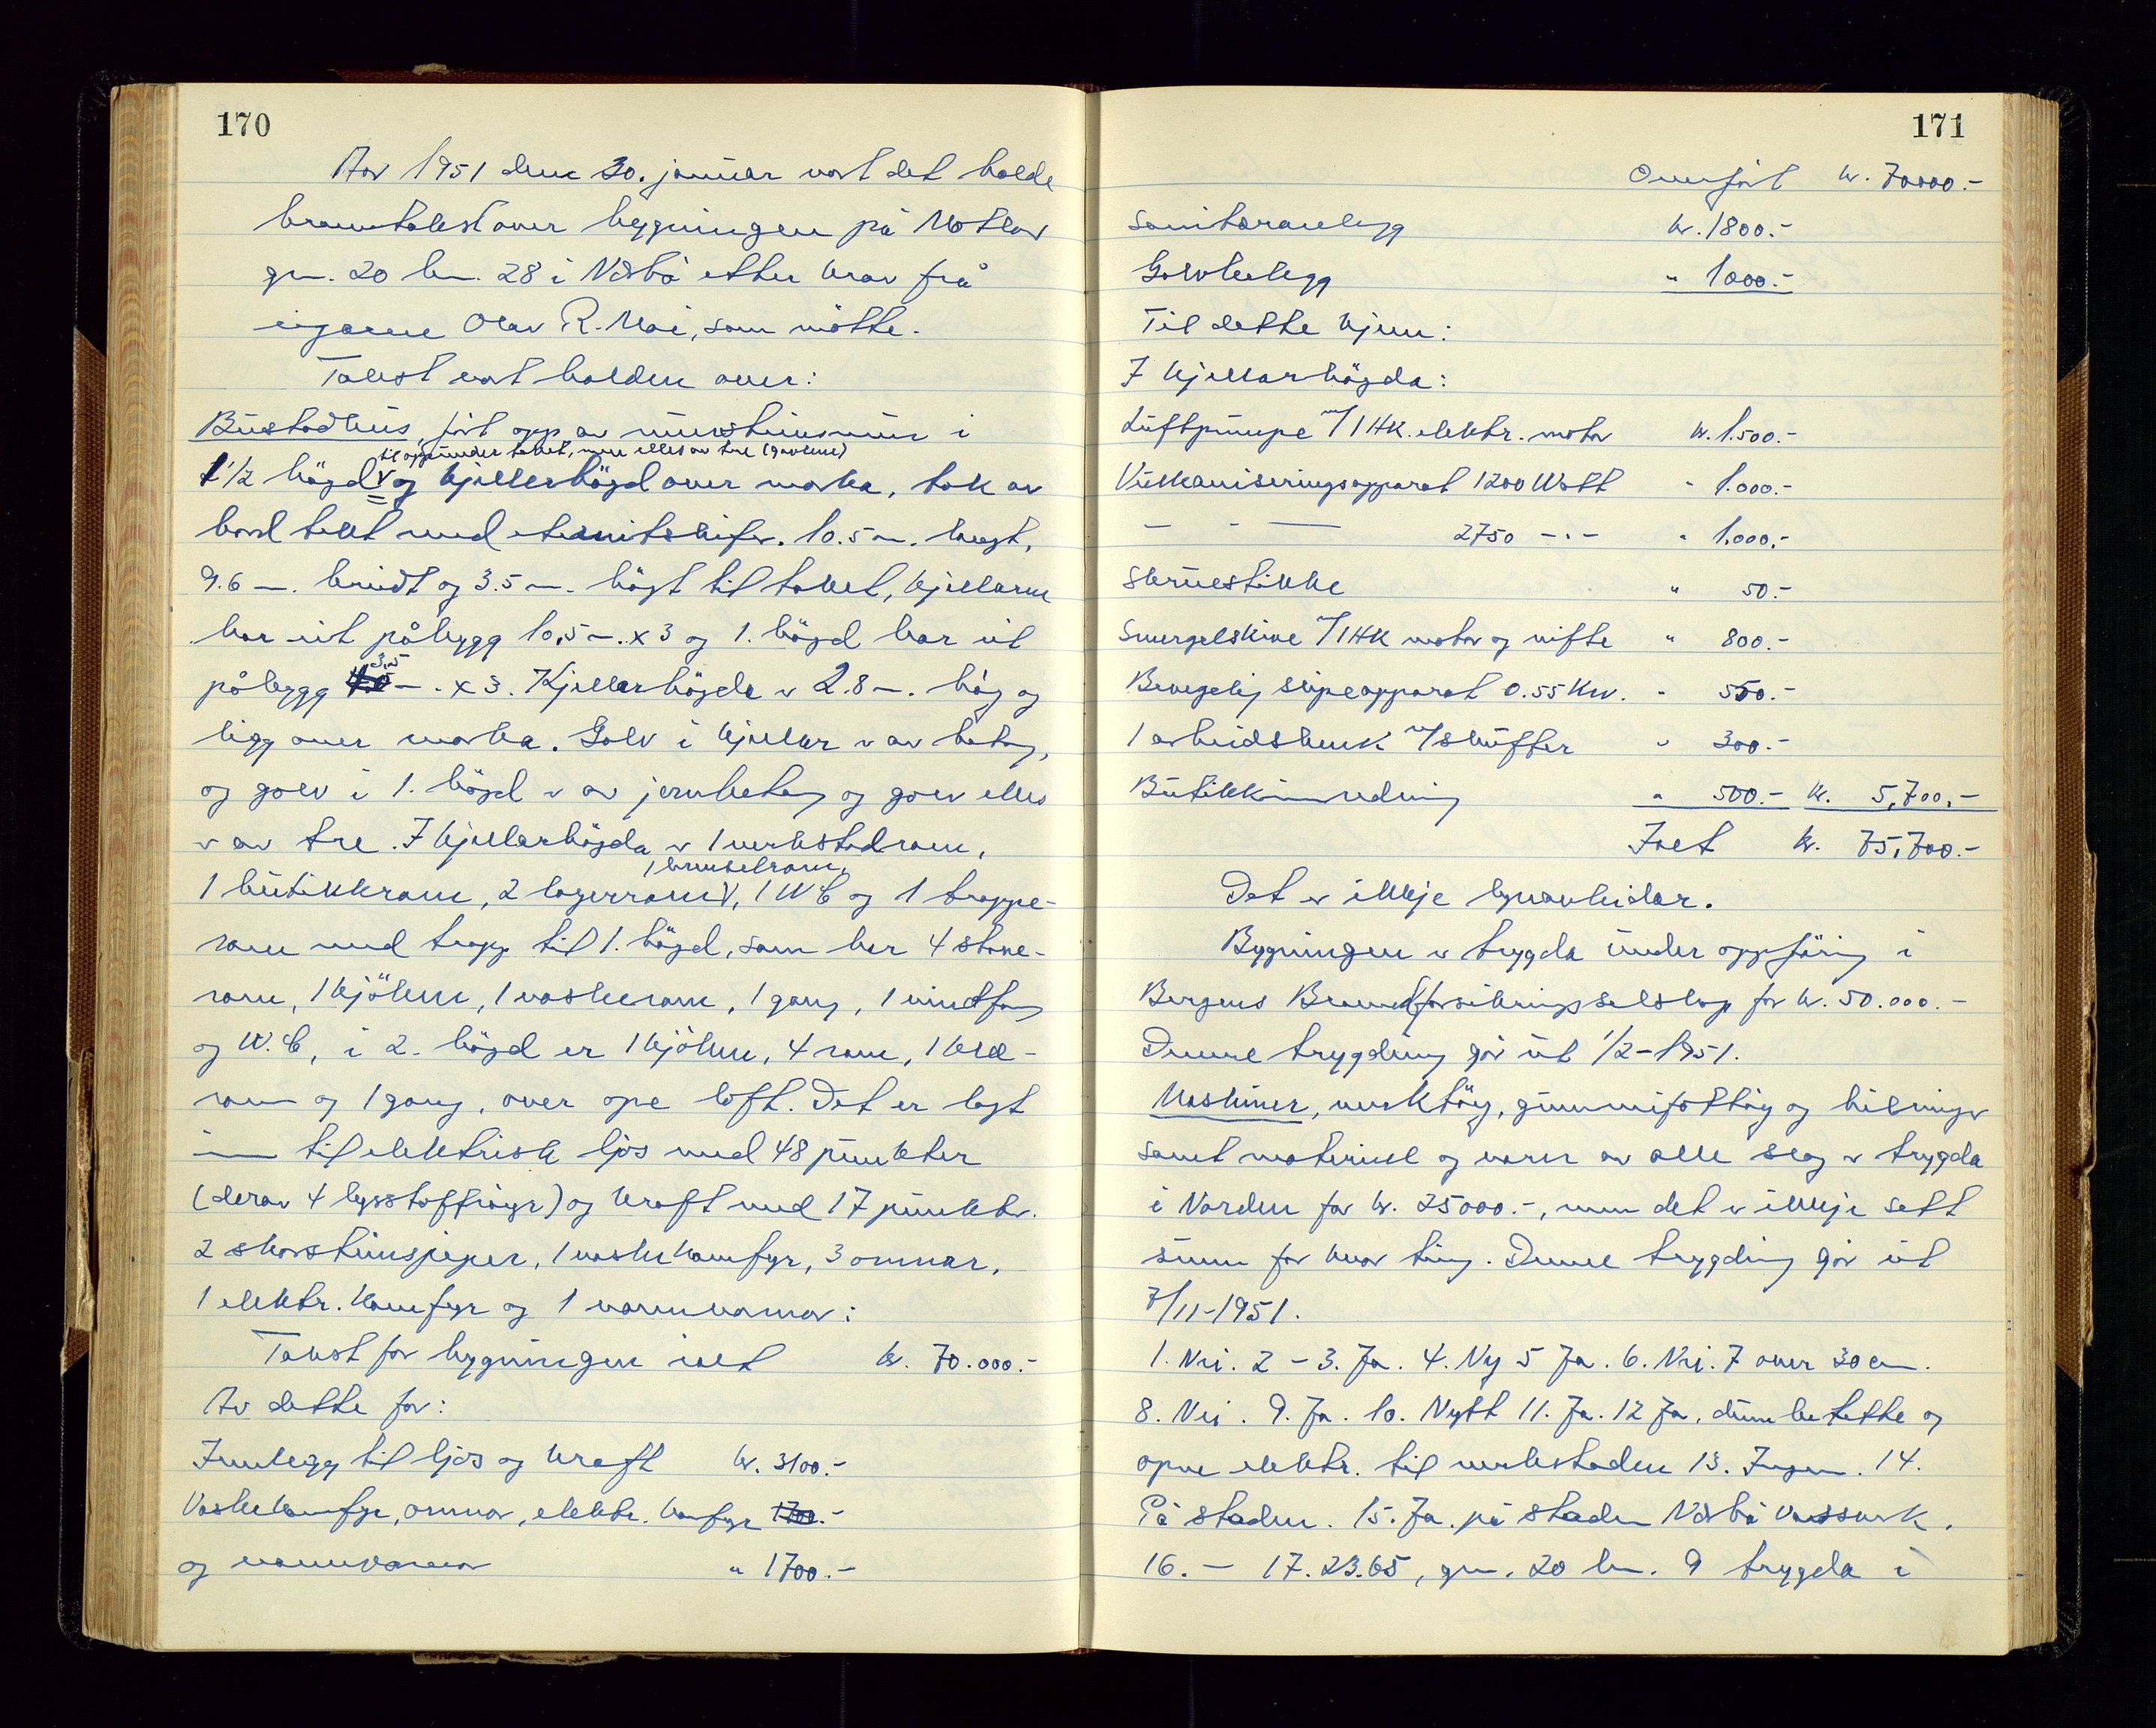 170
Aar 1951 den 30. januar vart det halde
branntakst over bygningen på Motlov
gn. 20 bn. 28 i Nærbø etter krav frå
eigaren Olav R. Moi, som møtte.
Takst vart halden over:
Bustadhus, ført opp av mursteinsmur i
til opp under taket, men elles av tre (gavlene)
1 1/2 høgd og kjellerhøgd over marka, tak av
bord tekt med eternitskifer. 10.5 m. langt,
9.6 m. breidt og 3.5 m. høgt til taket, kjellaren
har eit påbygg 10,5 m. x 3 og 1. høgd har eit
3,5
påbygg m. x 3. Kjellerhøgda er 2.8 m. høg og
ligg over marka. Golv i kjellar er av betong,
og golv i 1. høgd er av jernbetong og golv elles
er av tre. I kjellarhøgda er 1 verkstadrom,
1 brenselrom,
1 butikkrom, 2 lagerrom, 1 WC og 1 trappe-
rom med trapp til 1. høgd, som har 4 stove-
rom, 1 kjøken, 1 vaskerom, 1 gang, 1 vindfang
og W.C, i 2. høgd er 1 kjøken, 4 rom, 1 kled-
rom og 1 gang, over ope loft. Det er lagt
inn til elektrisk ljos med 48 punkter
(derav 4 lysstoffrøyr) og kraft med 17 punkter.
2 skorsteinspiper, 1 vaskekomfyr, 3 omnar,
1 elektr. komfyr og 1 varmvarmar:
Takst for bygningen ialt kr. 70.000.-
Av dette for:
Innlegg til ljos og kraft kr. 3100.-
Vaskekomfyr, omnar, elektr. komfyr 1700.-
og varmvarmar " 1700.-
171
Overført kr. 70000.-
Sanitæranlegg kr. 1800.-
Golvbelegg " 1000.-
Til dette kjem:
I kjellarhøgda:
Luftpumpe m/1 HK. elektr. motor kr. 1.500.-
Vulkaniseringsapparat 1200 Watt " 1.000.-
— " — 2750 -"- " 1.000.-
Skruestikke " 50.-
Smergelskive m/1 HK motor og vifte " 800.-
Bevegelig slipeapparat 0.55 Kw. " 550.-
1 arbeidsbenk m/skuffer " 300.-
Butikkinnredning " 500.- kr. 5,700.-
Ialt kr. 75,700.-
Det er ikkje lynavleidar.
Bygningen er trygda under oppføring i
Bergens Brandforsikringsselskap for kr. 50.000.-
Denne trygding går ut 1/2-1951.
Maskiner, verktøy, gummifottøy og bilringer
samt materiell og varer av alle slag er trygda
i Norden for kr. 25000.-, men det er ikkje sett
sum for kvar ting. Denne trygding går ut
7/11-1951.
1. Nei. 2 - 3. Ja. 4. Ny 5 Ja. 6. Nei. 7 over 30 cm.
8. Nei. 9. Ja. 10. Nytt 11. Ja. 12 Ja, dim betette og
opne elektr. til verkstaden 13. Ingen. 14.
På staden. 15. Ja. på staden Nærbø Vassverk.
16. - 17. 23.65, gn. 20 bn. 9 trygda i